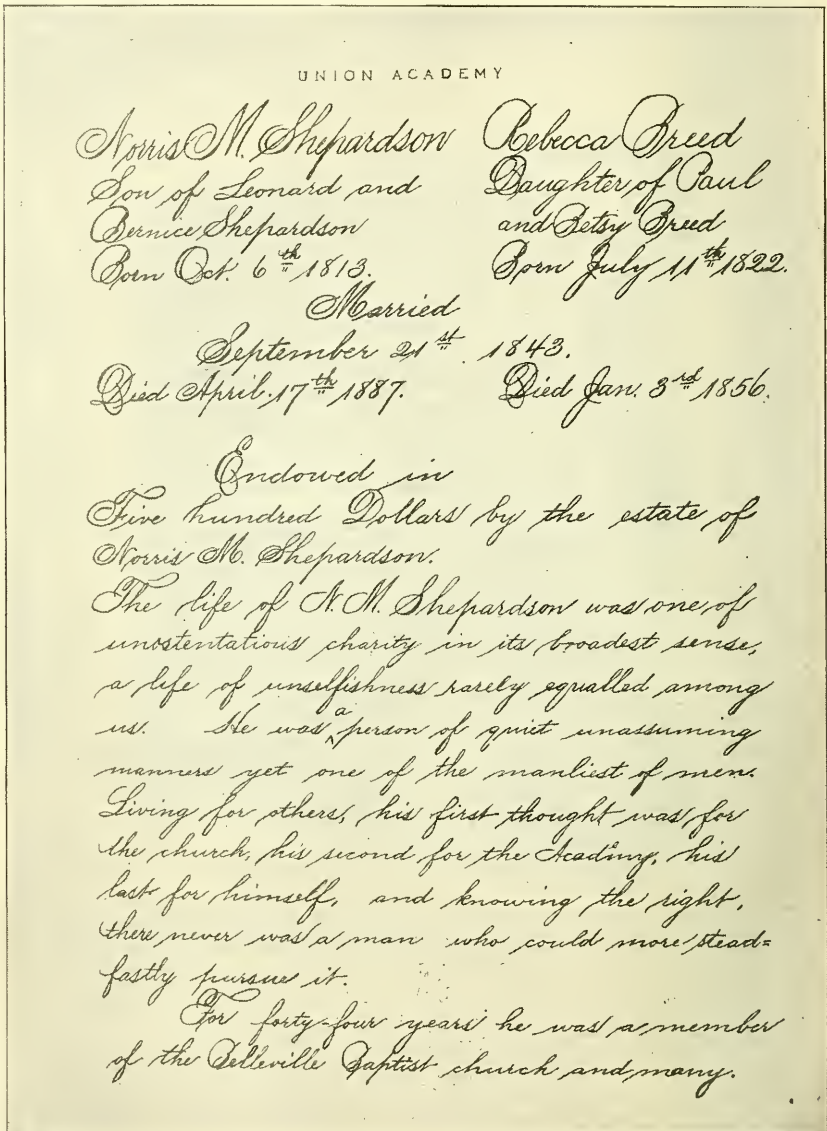 UNION ACADEMY
Norris M. Shepardson
Son of Leonard and
Bernice Shepardson
Born Oct. 6th 1813.
Rebecca Breed
Daughter of Paul
and Betsy Breed
Born July 11th 1822.
Married
September 21st 1843.
Died April. 17th 1887.
Died Jan. 3rd 1856.
Endowed in
Five hundred Dollars by the estate of
Norris M. Shepardson.
The life of N. M. Shepardson was one of
unostentatious charity in its broadest sense,
a life of unselfishness rarely equalled among
us. He was a person of quiet unassuming
manners yet one of the manliest of men.
Living for others, his first thought was for
the church, his second for the Academy, his
last for himself, and knowing the right,
there never was a man who could more stead=
fastly pursue it.
For forty-four years he was a member
of the Belleville Baptist church and many.